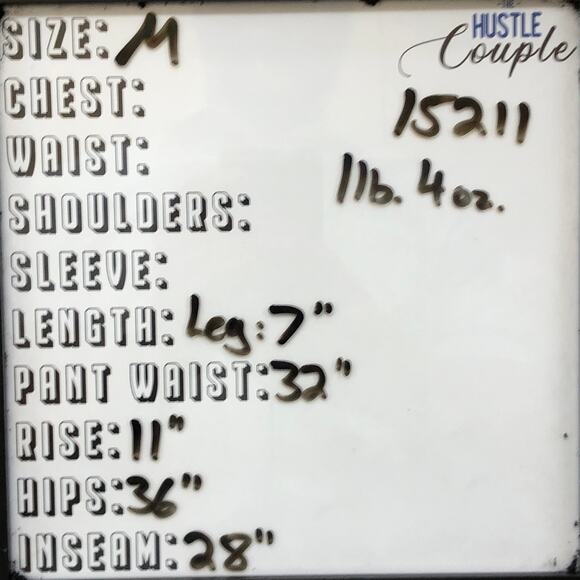 THE
HUSTLE
Couple
SIZE: M
CHEST:
15211
WAIST:
1 lb. 4 oz.
SHOULDERS:
SLEEVE:
LENGTH: Leg: 7"
PANT WAIST: 32"
RISE: 11"
HIPS: 36"
INSEAM: 28"